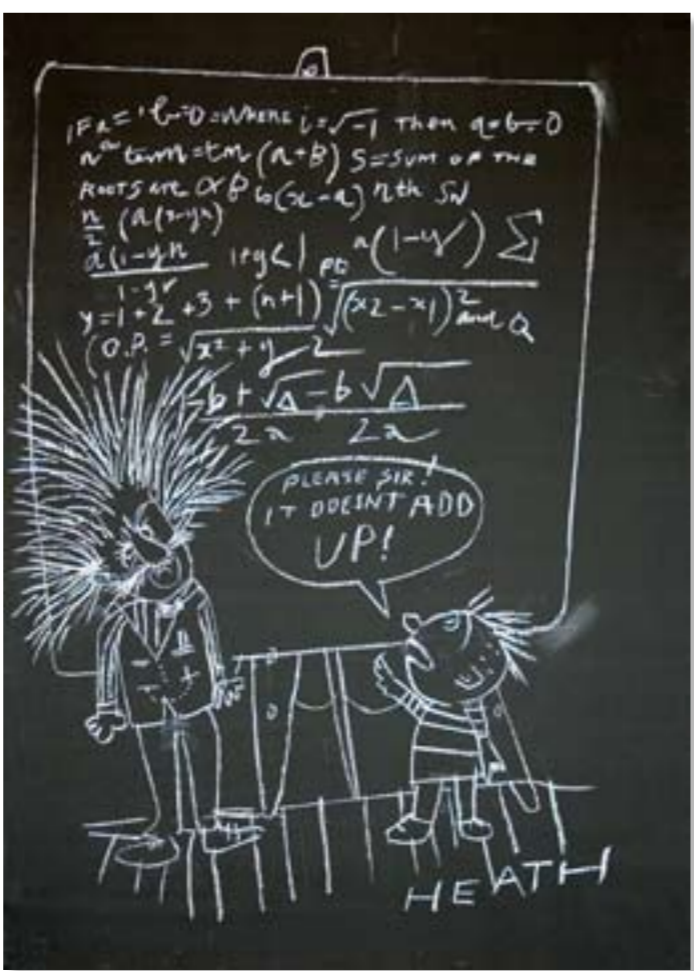 IF a = 'b=0 = WHERE i = √-1 Then a=b=0
nth term = tm (a+B) S = SUM OF THE
ROOTS ARE α β b(x-a) nth
n/2 (a(
a(1-yn 1+y<1 a(1-y) Σ
1-yr
y=1+2+3+(n+1) √(x2-x1)² and Q
(O.P. = √x²+y 2
-b+√Δ -b√Δ
2a 2a
PLEASE SIR!
IT DOESNT ADD
UP!
HEATH